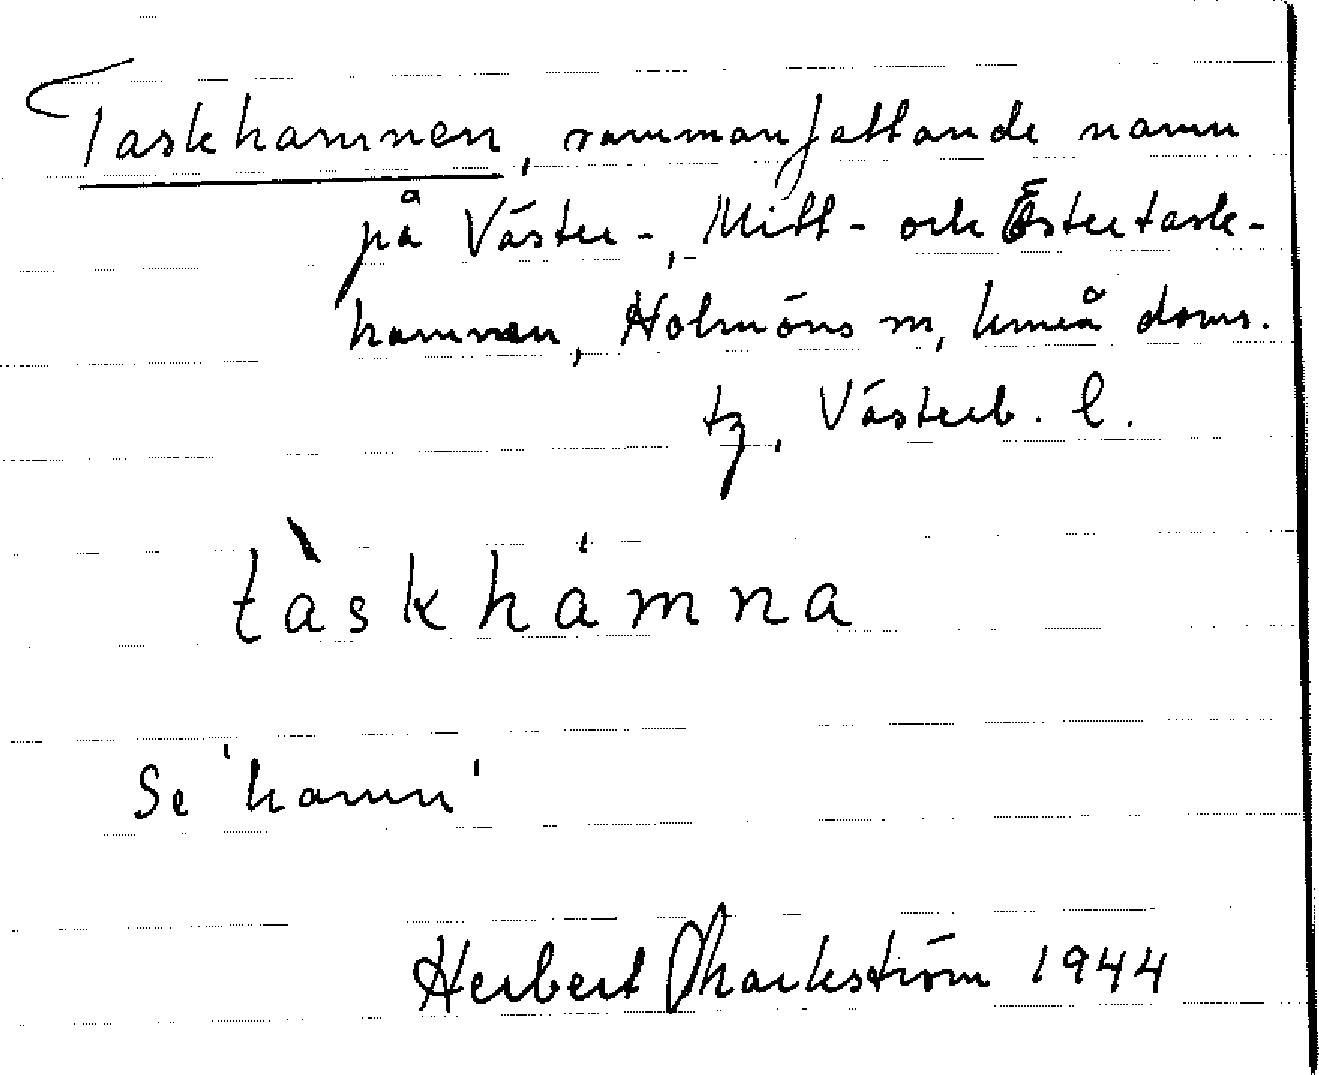 Taskhamnen, sammanfattande namn
på Väster-, Mitt- och Östertask-
hamnen, Holmöns sn, Umeå doms.
tg, Västerb. l.
tàskhámna
Se 'hamn'
Herbert Markström 1944